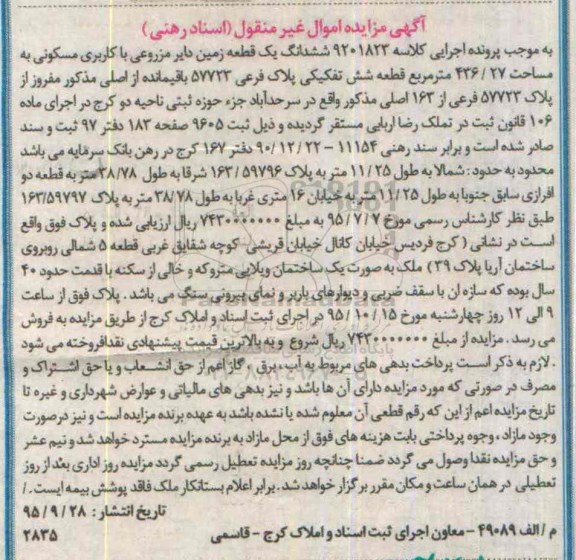 آگهی مزایده اموال غیر منقول (اسناد رهنی)
به موجب پرونده اجرایی کلاسه ۹۲۰۱۸۲۳ ششدانگ یک قطعه زمین دایر مزروعی با کاربری مسکونی به
مساحت ۴۳۶/۲۷ مترمربع قطعه شش تفکیکی پلاک فرعی ۵۷۷۲۳ باقیمانده از اصلی مذکور مفروز از
پلاک ۵۷۷۲۳ فرعی از ۱۶۳ اصلی مذکور واقع در سرحدآباد جزء حوزه ثبتی ناحیه دو کرج در اجرای ماده
۱۰۶ قانون ثبت در تملک رضا اربابی مستقر گردیده و ذیل ثبت ۹۶۰۵ صفحه ۱۸۳ دفتر ۹۷ ثبت و سند
صادر شده است و برابر سند رهنی ۱۱۱۵۴ - ۹۰/۱۲/۲۲ دفتر ۱۶۷ کرج در رهن بانک سرمایه می باشد
محدود به حدود: شمالا به طول ۱۱/۲۵ متر به پلاک ۱۶۳/۵۹۷۹۶ شرقا به طول ۳۸/۷۸متر به قطعه دو
افرازی سابق جنوبا به طول ۱۱/۲۵ متر به خیابان ۱۶ متری غربا به طول ۳۸/۷۸ متر به پلاک ۱۶۳/۵۹۷۹۷
طبق نظر کارشناس رسمی مورخ ۹۵/۷/۷ به مبلغ ۷۴۳۰۰۰۰۰۰۰ ریال ارزیابی شده و پلاک فوق واقع
است در نشانی (کرج فردیس خیابان کانال خیابان قریشی کوچه شقایق غربی قطعه ۵ شمالی روبروی
ساختمان آریا پلاک ۳۹) ملک به صورت یک ساختمان ویلایی متروکه و خالی از سکنه با قدمت حدود ۴۰
سال بوده که سازه ان با سقف ضربی و دیوارهای باربر و نمای بیرونی سنگ می باشد. پلاک فوق از ساعت
۹ الی ۱۲ روز چهارشنبه مورخ ۹۵/۱۰/۱۵ در اجرای ثبت اسناد و املاک کرج از طریق مزایده به فروش
می رسد. مزایده از مبلغ ۷۴۳۰۰۰۰۰۰۰ ریال شروع و به بالاترین قیمت پیشنهادی نقدا فروخته می شود
. لازم به ذکر است پرداخت بدهی های مربوط به آب، برق، گاز اعم از حق انشعاب و یا حق اشتراک و
مصرف در صورتی که مورد مزایده دارای آن ها باشد و نیز بدهی های مالیاتی و عوارض شهرداری و غیره تا
تاریخ مزایده اعم از این که رقم قطعی آن معلوم شده یا نشده باشد به عهده برنده مزایده است و نیز در صورت
وجود مازاد، وجوه پرداختی بابت هزینه های فوق از محل مازاد به برنده مزایده مسترد خواهد شد و نیم عشر
و حق مزایده نقدا وصول می گردد ضمنا چنانچه روز مزایده تعطیل رسمی گردد مزایده روز اداری بعد از روز
تعطیلی در همان ساعت و مکان مقرر برگزار خواهد شد. برابر اعلام بستانکار ملک فاقد پوشش بیمه ایست./
تاریخ انتشار: ۹۵/۹/۲۸
م/الف ۴۹۰۸۹ - معاون اجرای ثبت اسناد و املاک کرج - قاسمی
۲۸۳۵